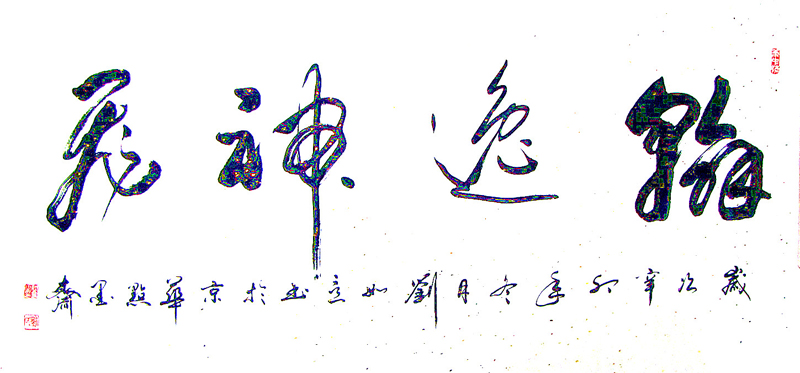 翰逸神飛
歲次辛卯年冬月劉如意書於京華點墨齋